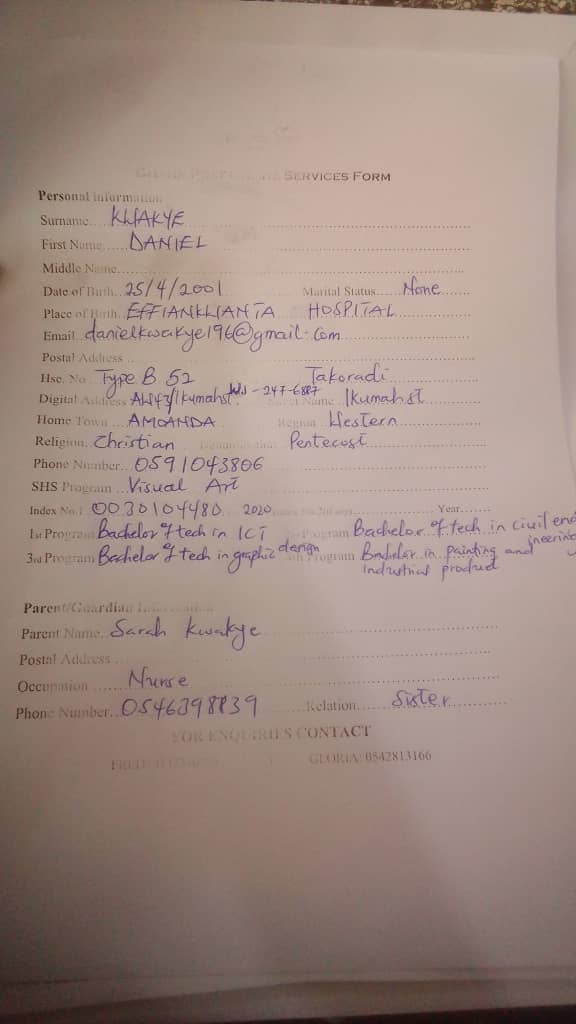 SERVICES FORM
Personal Information
Surname.... KWAKYE
First Name...... DANIEL
Middle Name
Date of Birth.. 25/4/2001 Marital Status.... None
Place of Birth. EFFIANKWANTA HOSPITAL
Email danielkwakye196@gmail.com
Postal Address
Hse. No. Type B 52 Takoradi
Digital Address Ikumahst. - 247-6887 Name Ikumah st
Home Town AMOANDA Region Western
Religion. Christian Pentecost
Phone Number.. 0591043806
SHS Program .. Visual Art
Index No. 00.30104480 2020 Year
1st Program Bachelor of tech in ICT Program Bachelor of tech in civil engineering
3rd Program Bachelor of tech in graphic design Program Bachelor in painting and industrial product
Parent/Guardian Information
Parent Name.. Sarah Kwakye
Postal Address
Occupation ...... Nurse
Phone Number.. 0546398839 Relation...... Sister
FOR ENQUIRIES CONTACT
GLORIA: 0542813166